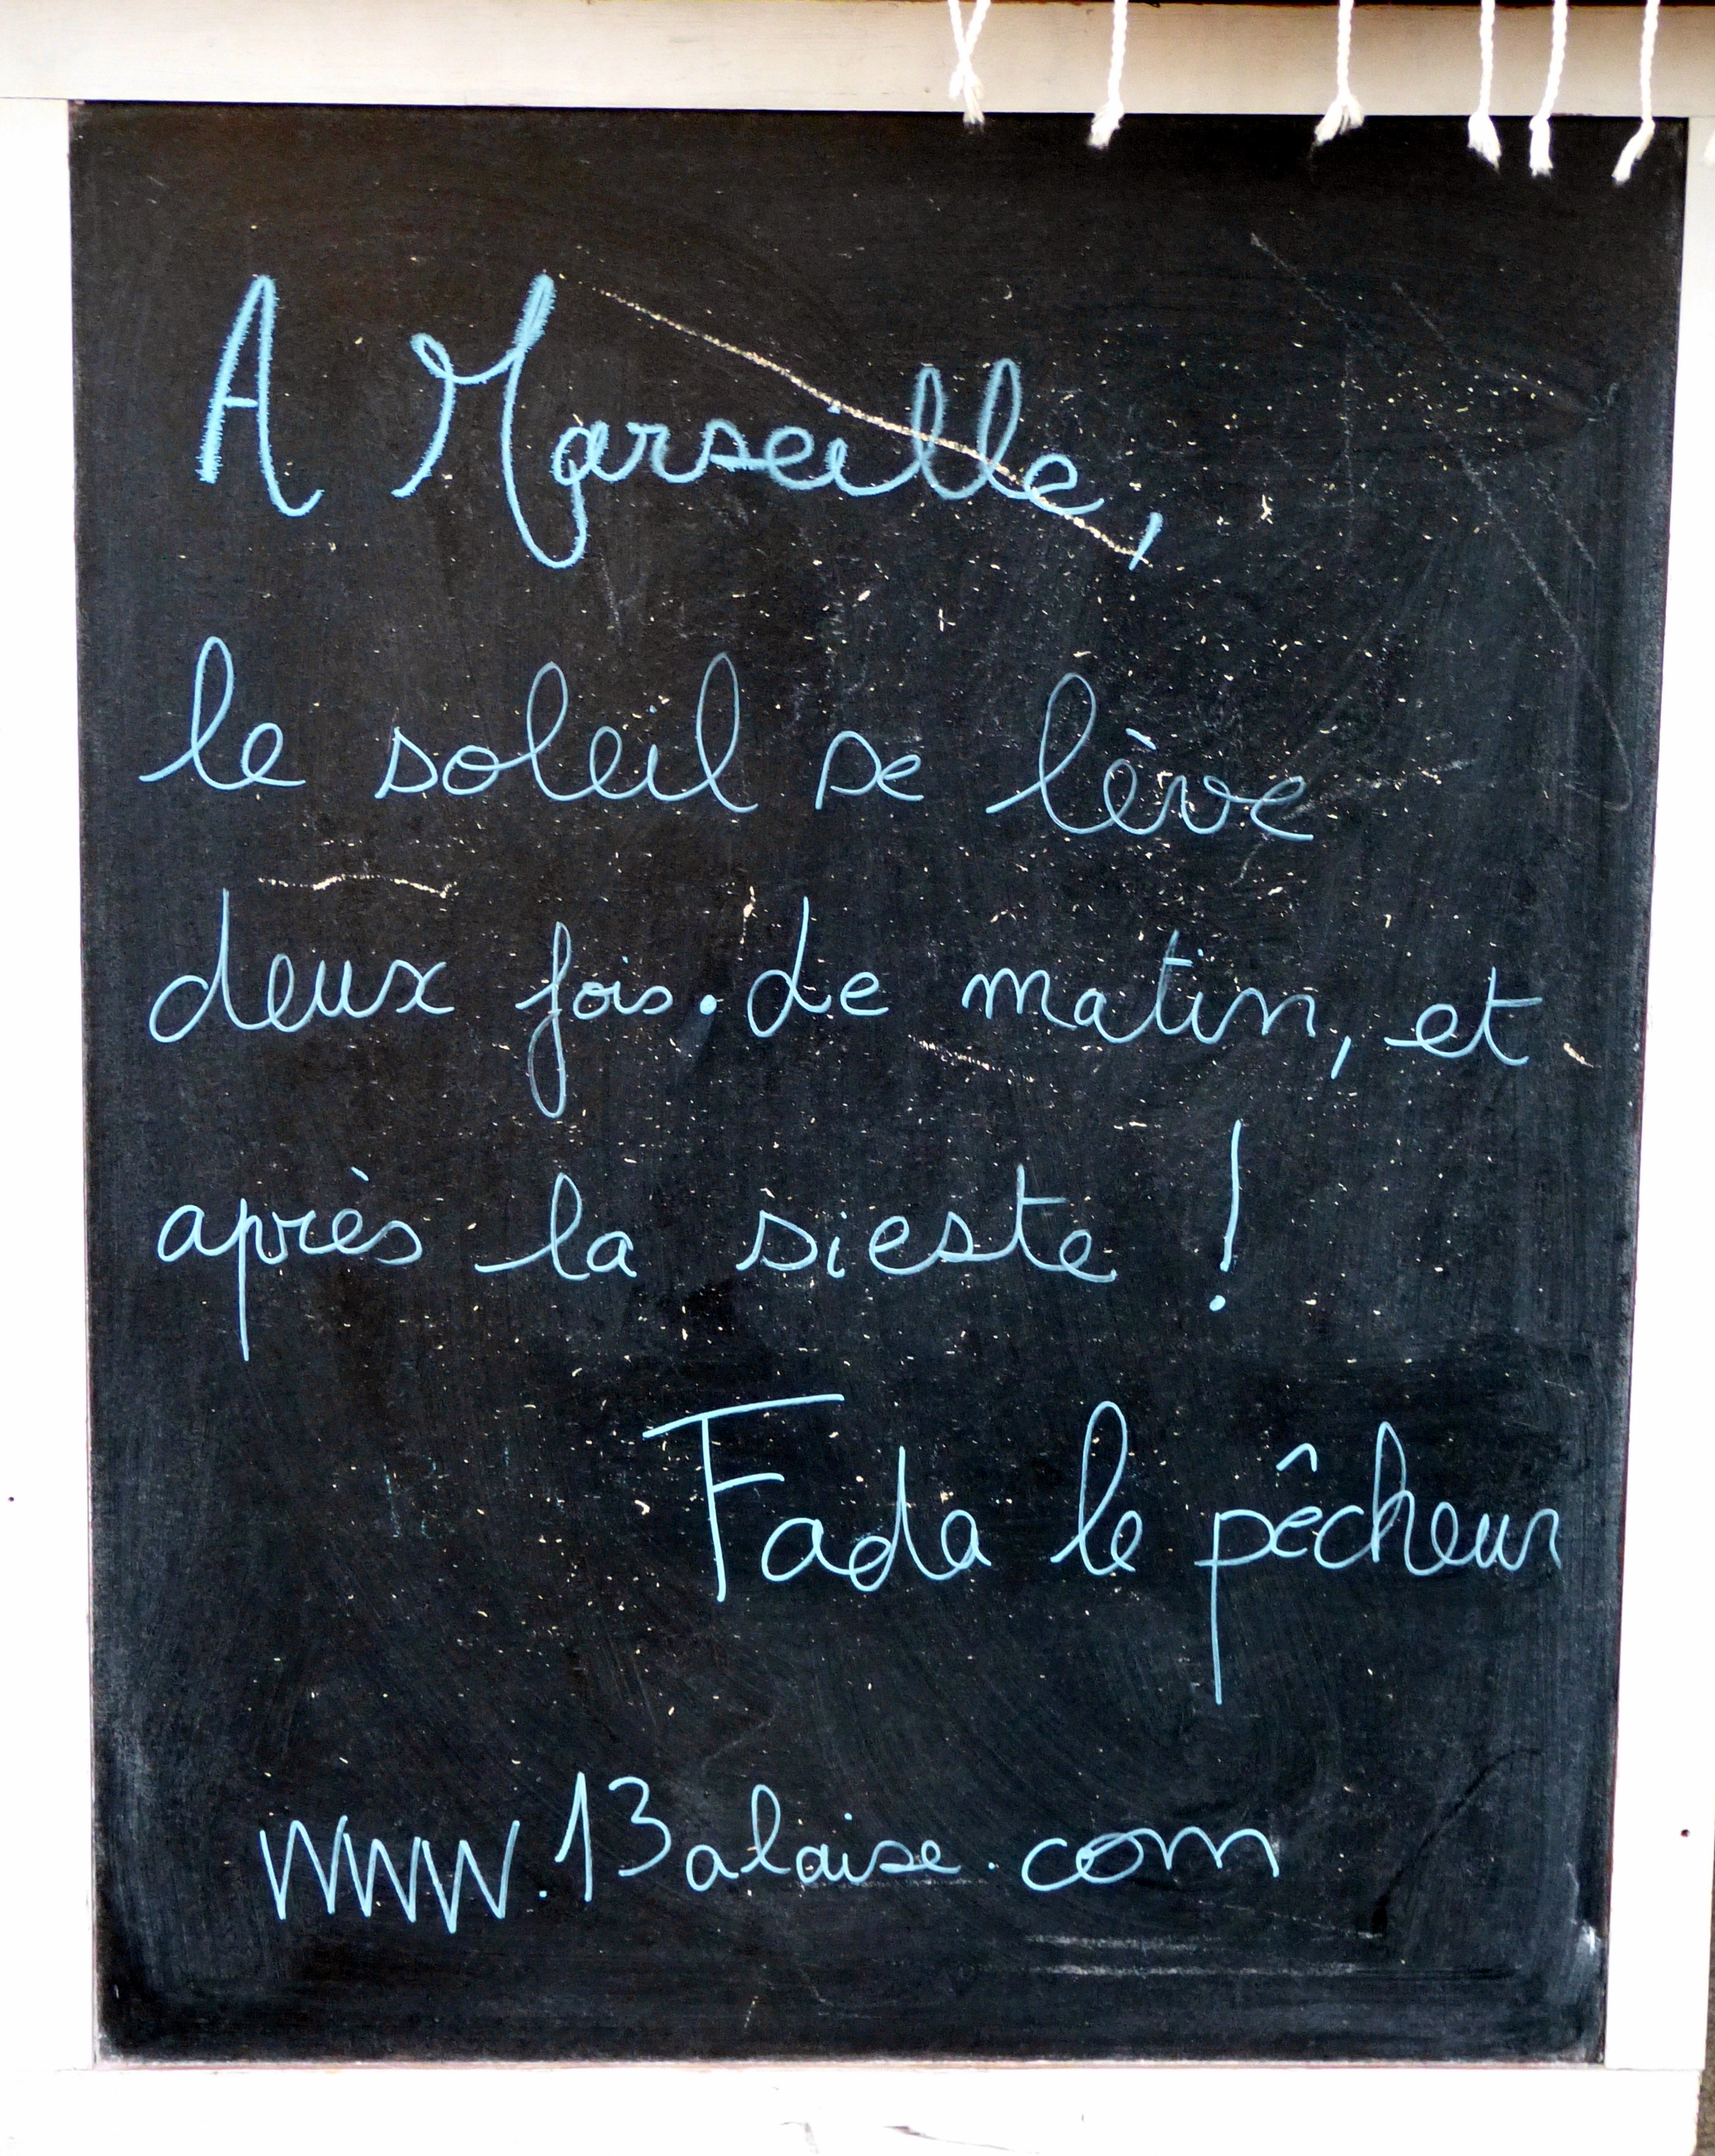 A Marseille,
le soleil se lève
deux fois. Le matin, et
après la sieste !
Fada le pêcheur
www.13alaise.com